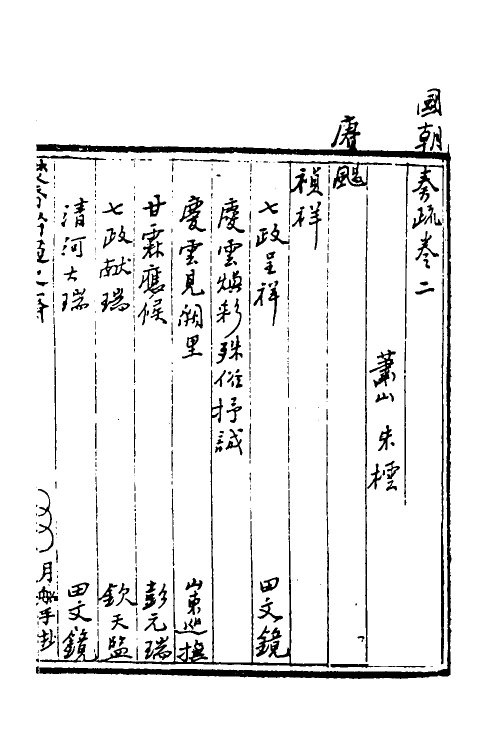 國朝奏疏卷二
蕭山 朱樰
賡颺
禎祥
七政呈祥 田文鏡
慶雲煥彩殊俗抒誠
慶雲見闕里 山東巡撫
甘霖應候 彭元瑞
七政献瑞 欽天監
清河大瑞 田文鏡
月 手抄